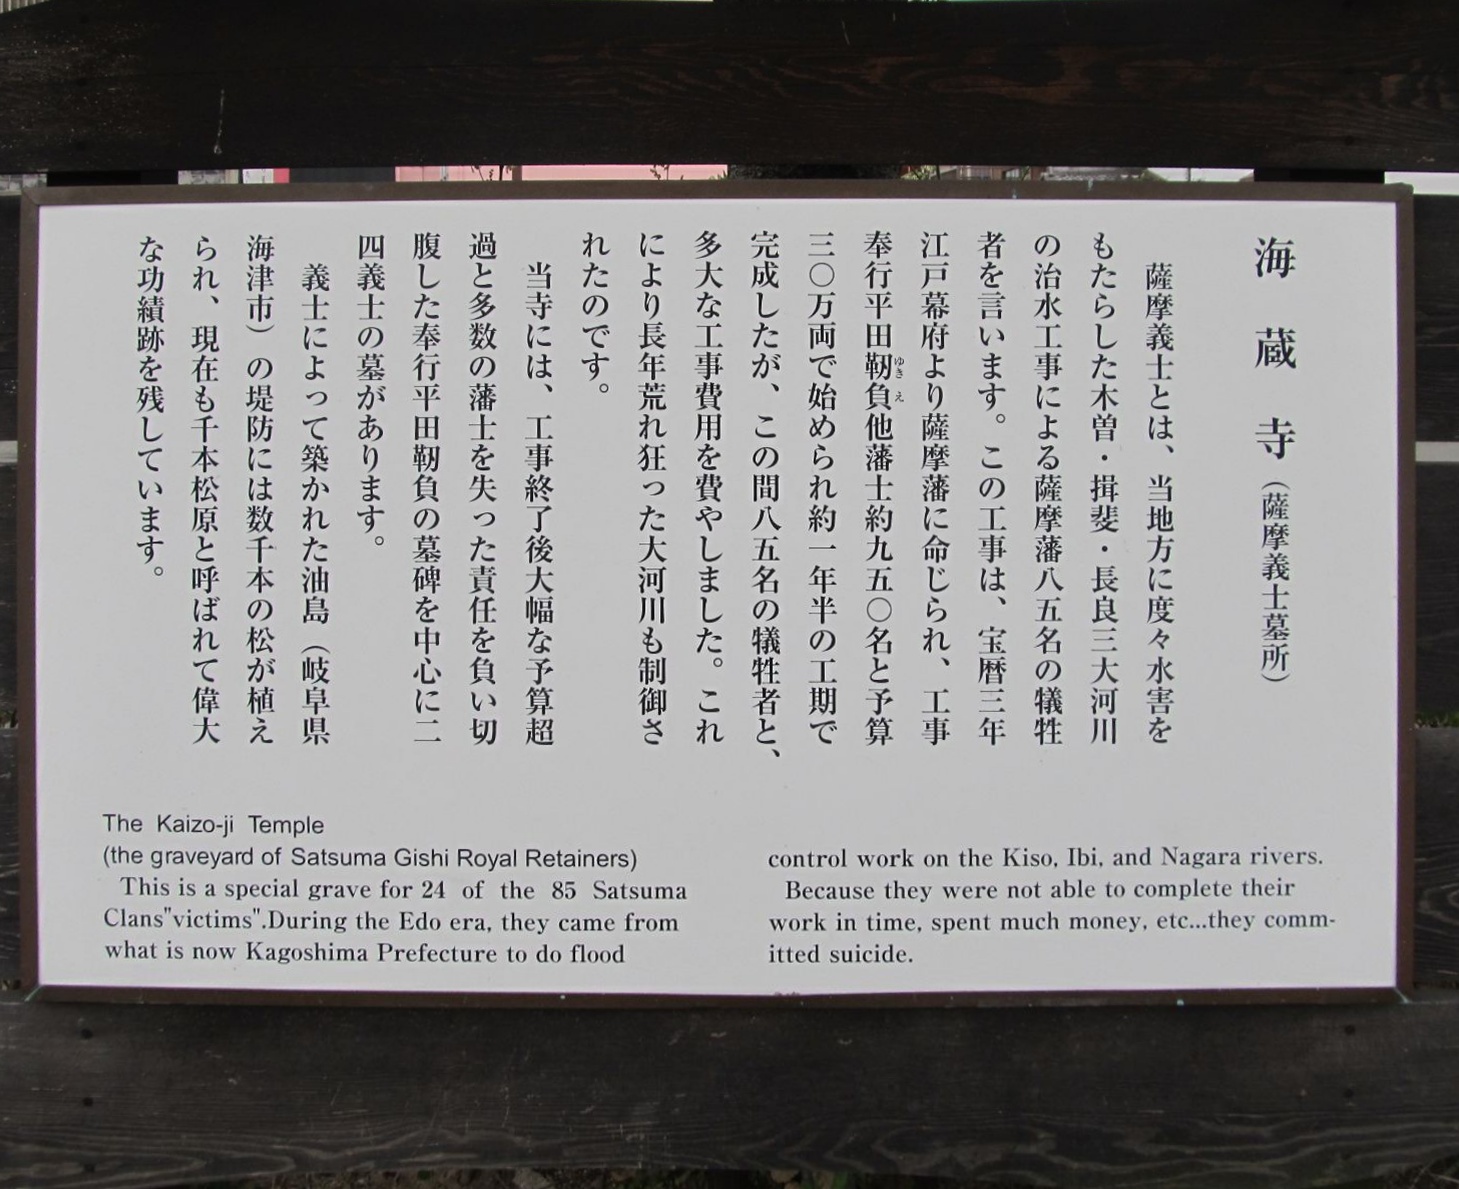 海蔵寺（薩摩義士墓所）
薩摩義士とは、当地方に度々水害を
もたらした木曽・揖斐・長良三大河川
の治水工事による薩摩藩八五名の犠牲
者を言います。この工事は、宝暦三年
江戸幕府より薩摩藩に命じられ、工事
奉行平田靱負他藩士約九五〇名と予算
ゆきえ
三〇万両で始められ約一年半の工期で
完成したが、この間八五名の犠牲者と、
多大な工事費用を費やしました。これ
により長年荒れ狂った大河川も制御さ
れたのです。
当寺には、工事終了後大幅な予算超
過と多数の藩士を失った責任を負い切
腹した奉行平田靱負の墓碑を中心に二
四義士の墓があります。
義士によって築かれた油島（岐阜県
海津市）の堤防には数千本の松が植え
られ、現在も千本松原と呼ばれて偉大
な功績跡を残しています。
The Kaizo-ji Temple
(the graveyard of Satsuma Gishi Royal Retainers)
This is a special grave for 24 of the 85 Satsuma
Clans"victims".During the Edo era, they came from
what is now Kagoshima Prefecture to do flood
control work on the Kiso, Ibi, and Nagara rivers.
Because they were not able to complete their
work in time, spent much money, etc...they comm-
itted suicide.